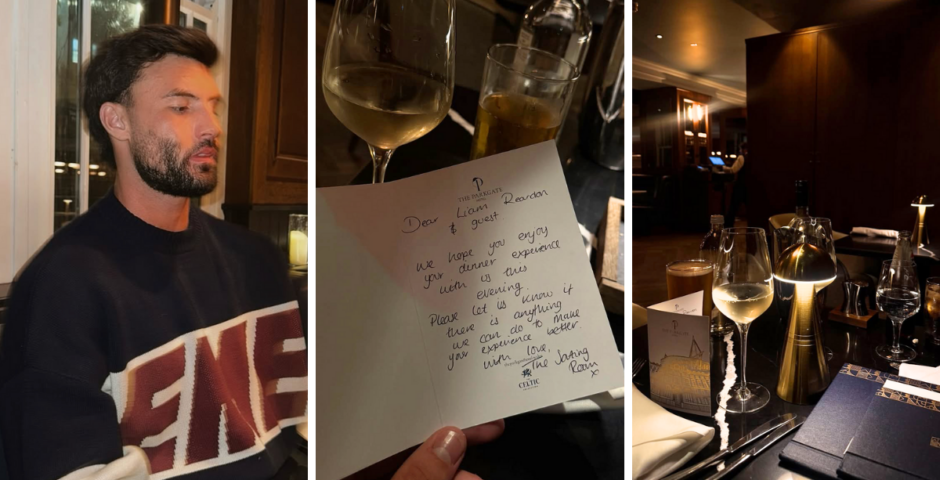 ENE
THE PARKGATE
HOTEL
Dear Liam Reardon
& guest.
We hope you enjoy
your dinner experience
with us this
evening.
Please let us know if
there is anything
we can do to make
your experience better.
with love,
The Sorting
Room x
CELTIC